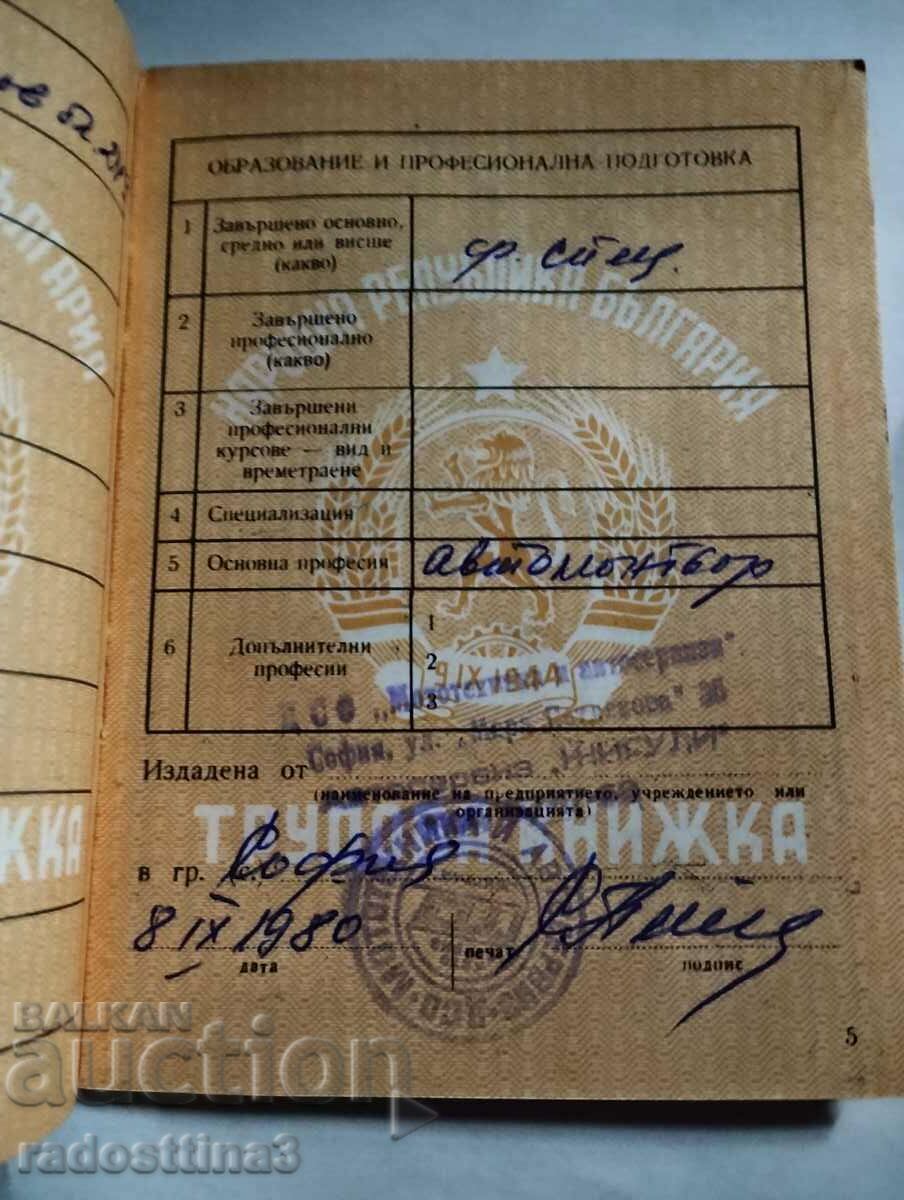 ОБРАЗОВАНИЕ И ПРОФЕСИОНАЛНА ПОДГОТОВКА
1 Завършено основно,
средно или висше
(какво)
2 Завършено
професионално
(какво)
3 Завършени
професионални
курсове — вид и
времетраене
4 Специализация
5 Основна професия автомонтьор
6 Допълнителни
професии
1
2
3
НАРОДНА РЕПУБЛИКА БЪЛГАРИЯ
9 IX 1944
ДСО „Мототехника и автосервизи"
София, ул.
Издадена от
(наименование на предприятието, учреждението или
организацията)
ТРУДОВА КНИЖКА
в гр. София
8 IX 1980
дата печат подпис
5
БЪЛГАРИЯ
BALKAN
auction
radosttina3